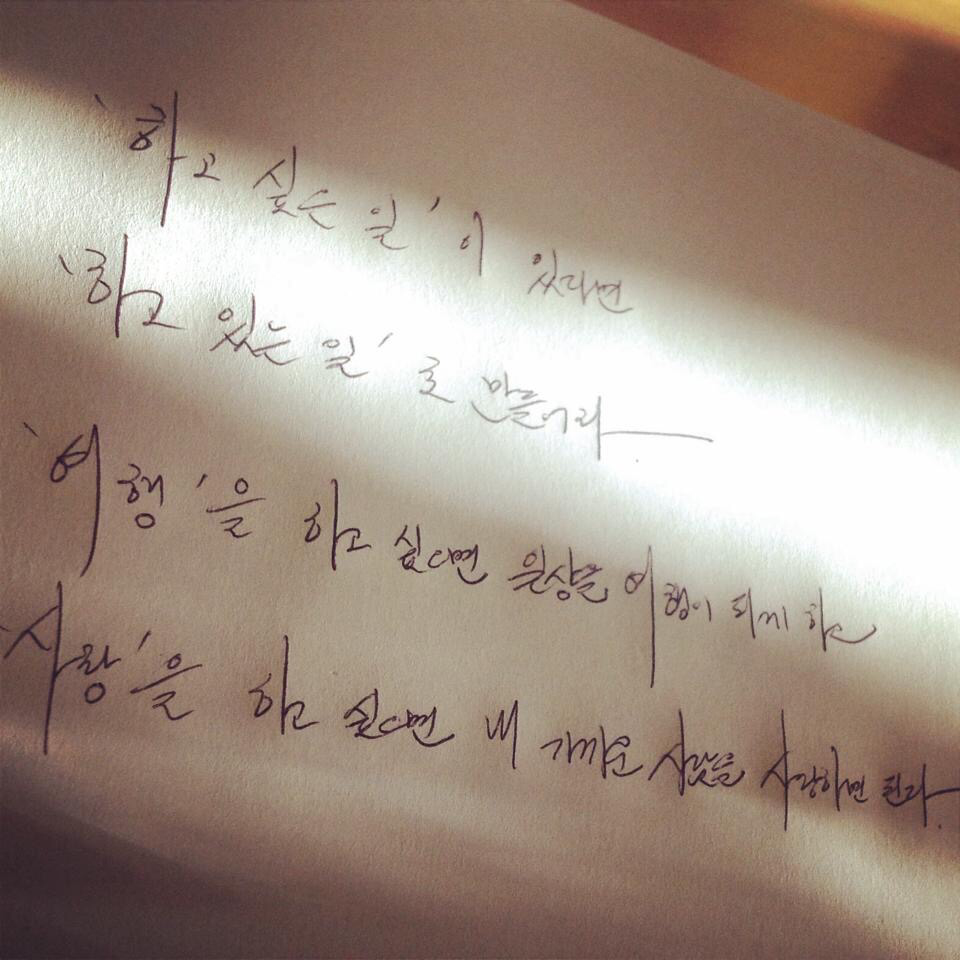 '하고 싶은 일'이 있다면
'하고 있는 일'로 만들어라
'여행'을 하고 싶다면 일상을 여행이 되게 하고
'사랑'을 하고 싶다면 내 가까운 사람을 사랑하면 된다.